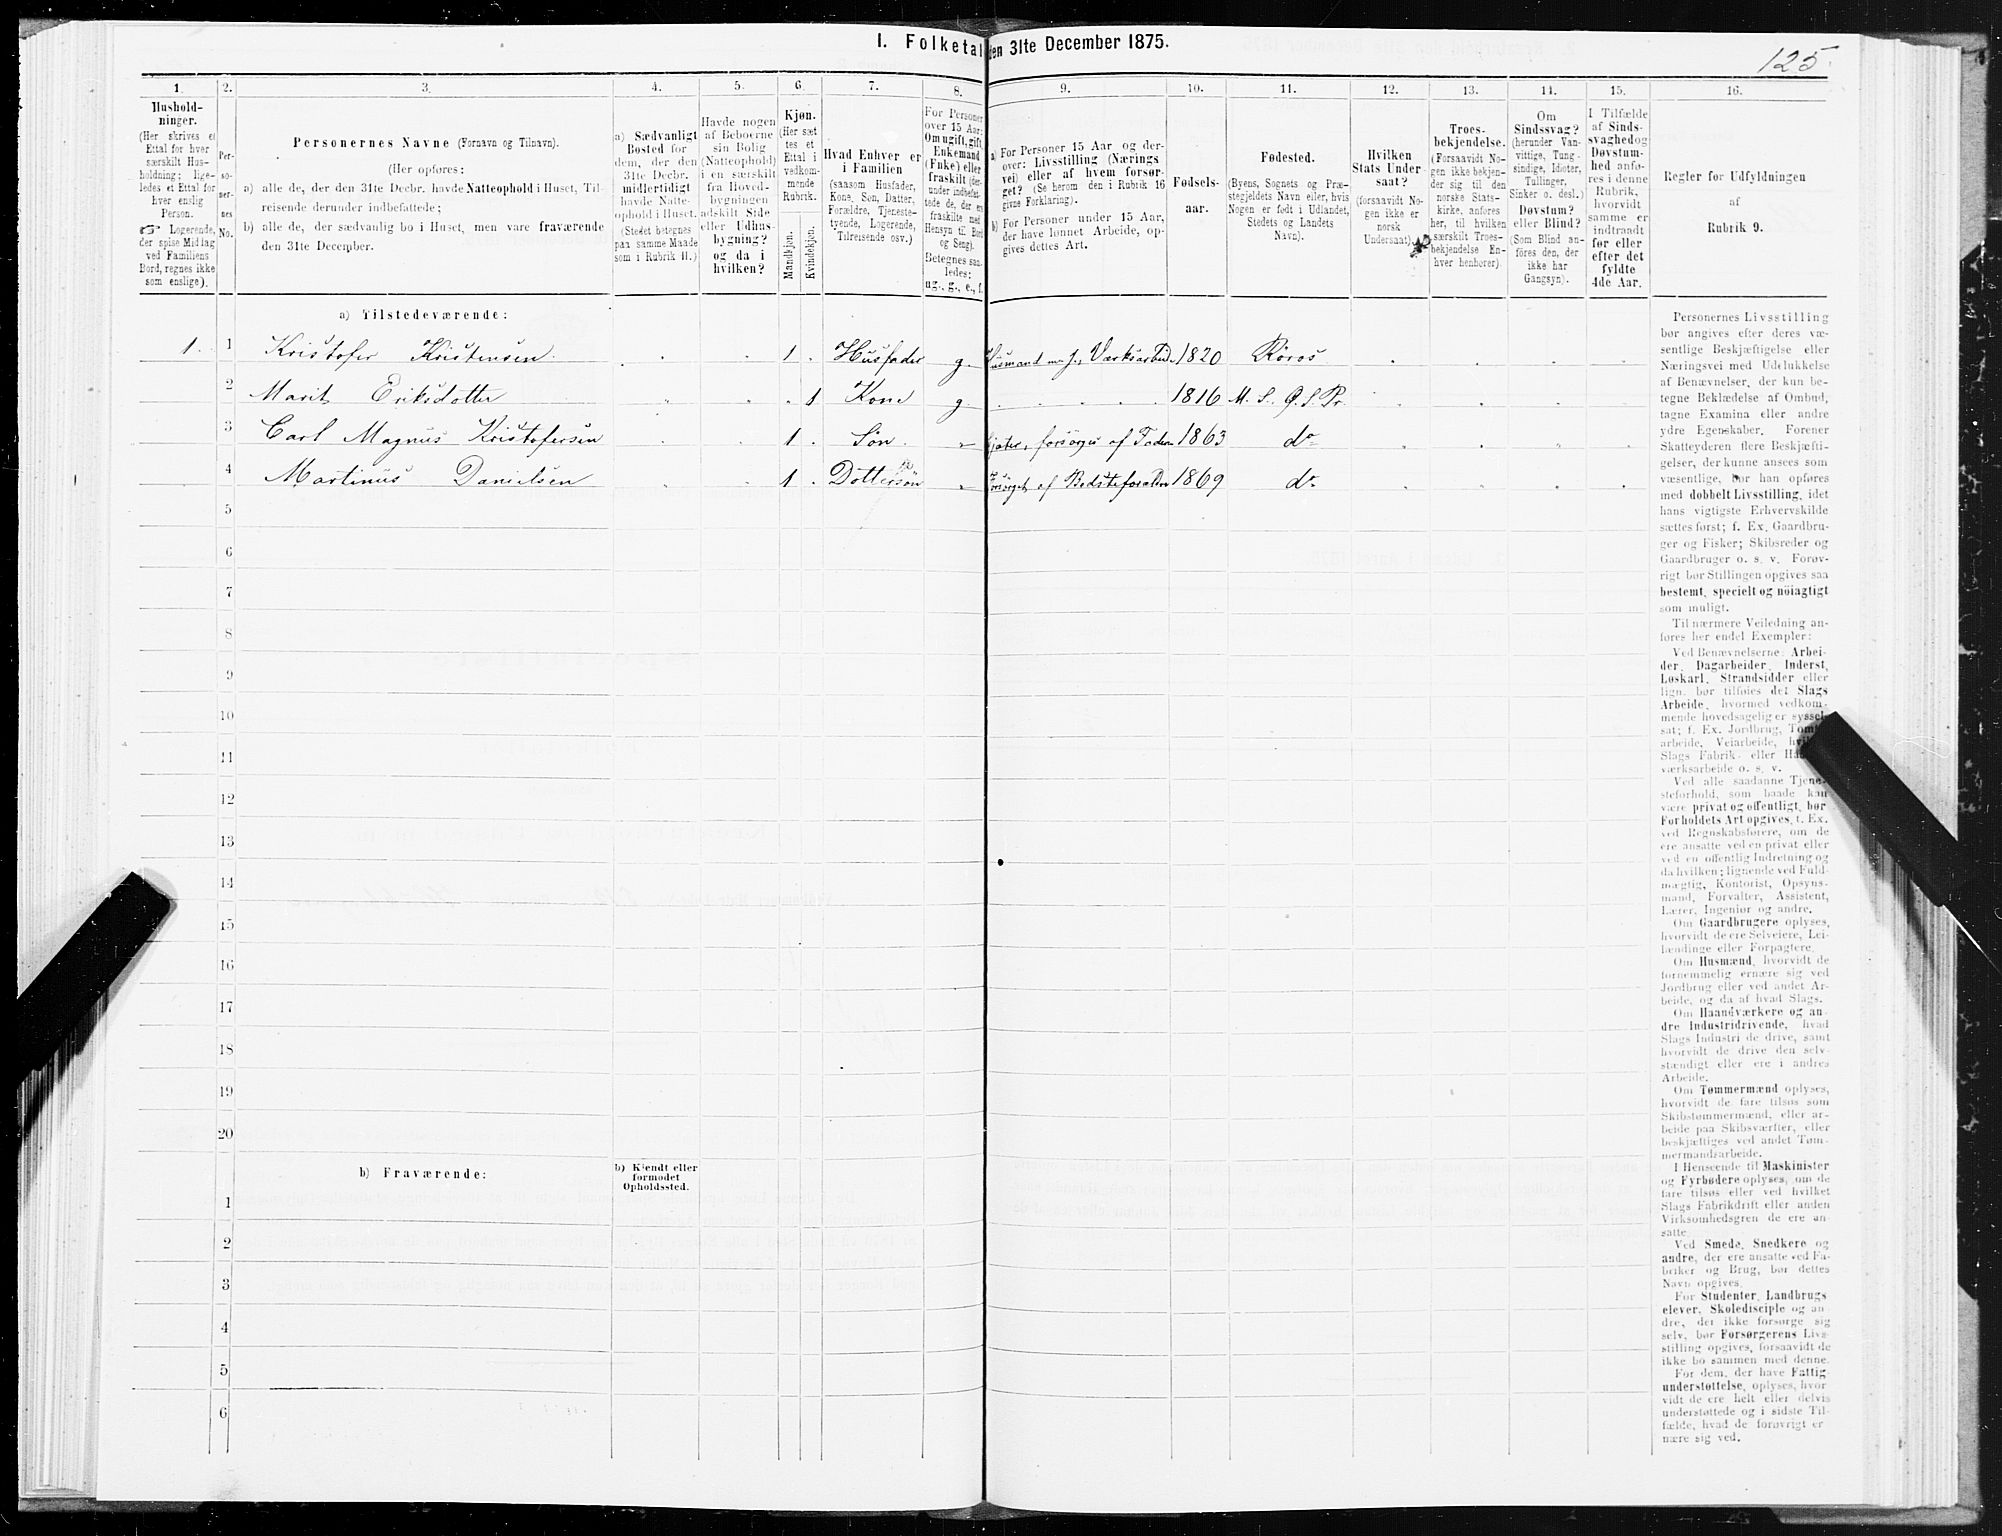 I. Folketal den 31te December 1875.
125
1. 2. 3. 4. 5. 6. 7. 8. 9. 10. 11. 12. 13. 14. 15. 16.
Hushold-
ninger.
(Her skrives et
Ettal for hver
særskilt Hus-
holdning; lige-
ledes et Ettal for
hver enslig
Person.
☞ Logerende,
der spise Middag
ved Familiens
Bord, regnes ikke
som enslige).
Per-
so-
ner-
nes
No.
Personernes Navne (Fornavn og Tilnavn).
(Her opføres:
a) alle de, der den 31te Decbr. havde Natteophold i Huset, Til-
reisende derunder indbefattede;
b) alle de, der sædvanlig bo i Huset, men vare fraværende
den 31te December.
a) Sædvanligt
Bosted for
dem, der den
31te Decbr.
midlertidigt
havde Natte-
ophold i Huset.
(Stedet betegnes
paa samme Maade
som i Rubrik 11.)
Havde nogen
af Beboerne
sin Bolig
(Natteophold)
i en særskilt
fra Hoved-
bygningen
adskilt Side
eller Udhus-
bygning?
og da i
hvilken?
Kjøn.
(Her sæt
tes et
Ettal i
vedkom-
mende
Rubrik.
Mandkjøn.
Kvindekjøn.
Hvad Enhver er
i Familien
(saasom Husfader,
Kone, Søn, Datter,
Forældre, Tjeneste-
tyende, Logerende,
Tilreisende osv.)
For Personer
over 15 Aar:
Om ugift, gift,
Enkemand
(Enke) eller
fraskilt (der-
under indbefat-
tede de, der ere
fraskilte med
Hensyn til Bord
og Seng).
Betegnes saa-
ledes:
ug., g., e., f.
a) For Personer 15 Aar og der-
over: Livsstilling (Nærings
vei) eller af hvem forsør-
get? (Se herom den i Rubrik 16
givne Forklaring).
b) For Personer under 15 Aar,
der have lønnet Arbeide, op-
gives dettes Art.
Fødsels-
aar.
Fødested.
(Byens, Sognets og Præ-
stegjeldets Navn eller, hvis
Nogen er født i Udlandet,
Stedets og Landets
Navn).
Hvilken
Stats Under
saat?
(forsaavidt No-
gen ikke er
norsk
Undersaat).
Troes-
bekjendelse.
(Forsaavidt No-
gen ikke bekjen-
der sig til den
norske Stats-
kirke, anføres
her, til hvilken
særskilt Troes-
bekjendelse En-
hver henhører).
Om
Sindssvag?
(herunder Van-
vittige, Tung-
sindige, Idioter,
Tullinger,
Sinker o. desl.)
Døvstum?
eller Blind?
(Som Blind an-
føres den, der
ikke har
Gangsyn).
I Tilfælde
af Sinds-
svaghed og
Døvstum-
hed anfø-
res i denne
Rubrik,
hvorvidt
samme er
indtraadt
før eller
efter det
fyldte
4de Aar.
Regler for Udfyldningen
af
Rubrik 9.
a) Tilstedeværende:
1. 1 Kristofer Kristensen 1 Husfader g. Husmand m. J., Værksarbeid. 1820 Røros
2 Marit Eriksdotter 1 Kone g. 1816 M. S. Q. S. Pr.
3 Carl Magnus Kristofersen 1 Søn forsörges af Faderen 1863 do
4 Martinus Danielsen 1 Dottersøn Forsörget af Bedsteforældre 1869 do
5
6
7
8
9
10
11
12
13
14
15
16
17
18
19
20
b) Fraværende:
b) Kjendt eller
formodet
Opholdssted.
1
2
3
4
5
6
Personernes Livsstilling
bør angives efter deres væ-
sentlige Beskjæftigelse eller
Næringsvei med Udelukkelse
af Benævnelser, der kun be-
tegne Beklædelse af Ombud,
tagne Examina eller andre
ydre Egenskaber. Forener
Skatteyderen flere Beskjæfti-
gelser, der kunne ansees som
væsentlige, bør han opføres
med dobbelt Livsstilling, idet
hans vigtigste Erhvervskilde
sættes først; f. Ex. Gaardbru-
ger og Fisker; Skibsreder og
Gaardbruger o. s. v. Forøv-
rigt bør Stillingen opgives saa
bestemt, specielt og nöiagtigt
som muligt.
Til nærmere Veiledning an-
føres her endel Exempler:
Ved Benævnelserne: Arbei-
der, Dagarbeider, Inderst,
Løskarl, Strandsidder eller
lign. bør tilføies det Slags
Arbeide, hvormed vedkom-
mende hovedsagelig er syssel-
sat; f. Ex. Jordbrug,
arbeide, Veiarbeide,
Slags Fabrik- eller
værksarbeide o. s. v.
Ved alle saadanne Tjene-
steforhold, som baade kan
være privat og offentligt, bør
Forholdets Art opgives, f. Ex.
ved Regnskabsførere, om de
ere ansatte ved en privat eller
ved en offentlig Indretning og
da hvilken; lignende ved Fuld-
mægtig, Kontorist, Opsyns-
mand, Forvalter, Assistent,
Lærer, Ingeniør og andre.
Om Gaardbrugere oplyses,
hvorvidt de ere Selveiere, Lei-
lændinge eller Forpagtere.
Om Husmænd, hvorvidt de
fornemmelig ernære sig ved
Jordbrug eller ved andet Ar-
beide, og da af hvad Slags.
Om Haandværkere og an-
dre Industridrivende, hvad
Slags Industri de drive, samt
hvorvidt de drive den selv-
stændigt eller ere i andres
Arbeide.
Om Tømmermænd oplyses,
hvorvidt de fare tilsøs som
Skibstømmermænd, eller ar-
beide paa Skibsværfter, eller
beskjæftiges ved andet Tøm-
mermandsarbeide.
I Henseende til Maskinister
og Fyrbødere oplyses, om de
fare tilsøs eller ved hvilket
Slags Fabrikdrift eller anden
Virksomhedsgren de ere an-
satte.
Ved Smede, Snedkere og
andre, der ere ansatte ved Fa-
briker og Brug, bør dettes
Navn opgives.
For Studenter, Landbrugs
elever, Skoledisciple og an-
dre, der ikke forsørge sig
selv, bør Forsørgerens Livs-
stilling opgives, forsaavidt de
ikke bo sammen med denne.
For dem, der have Fattig
understøttelse, oplyses, hvor
vidt de ere helt eller delvis
understøttede og i sidste Til-
fælde, hvad de forøvrigt er
nære sig ved.